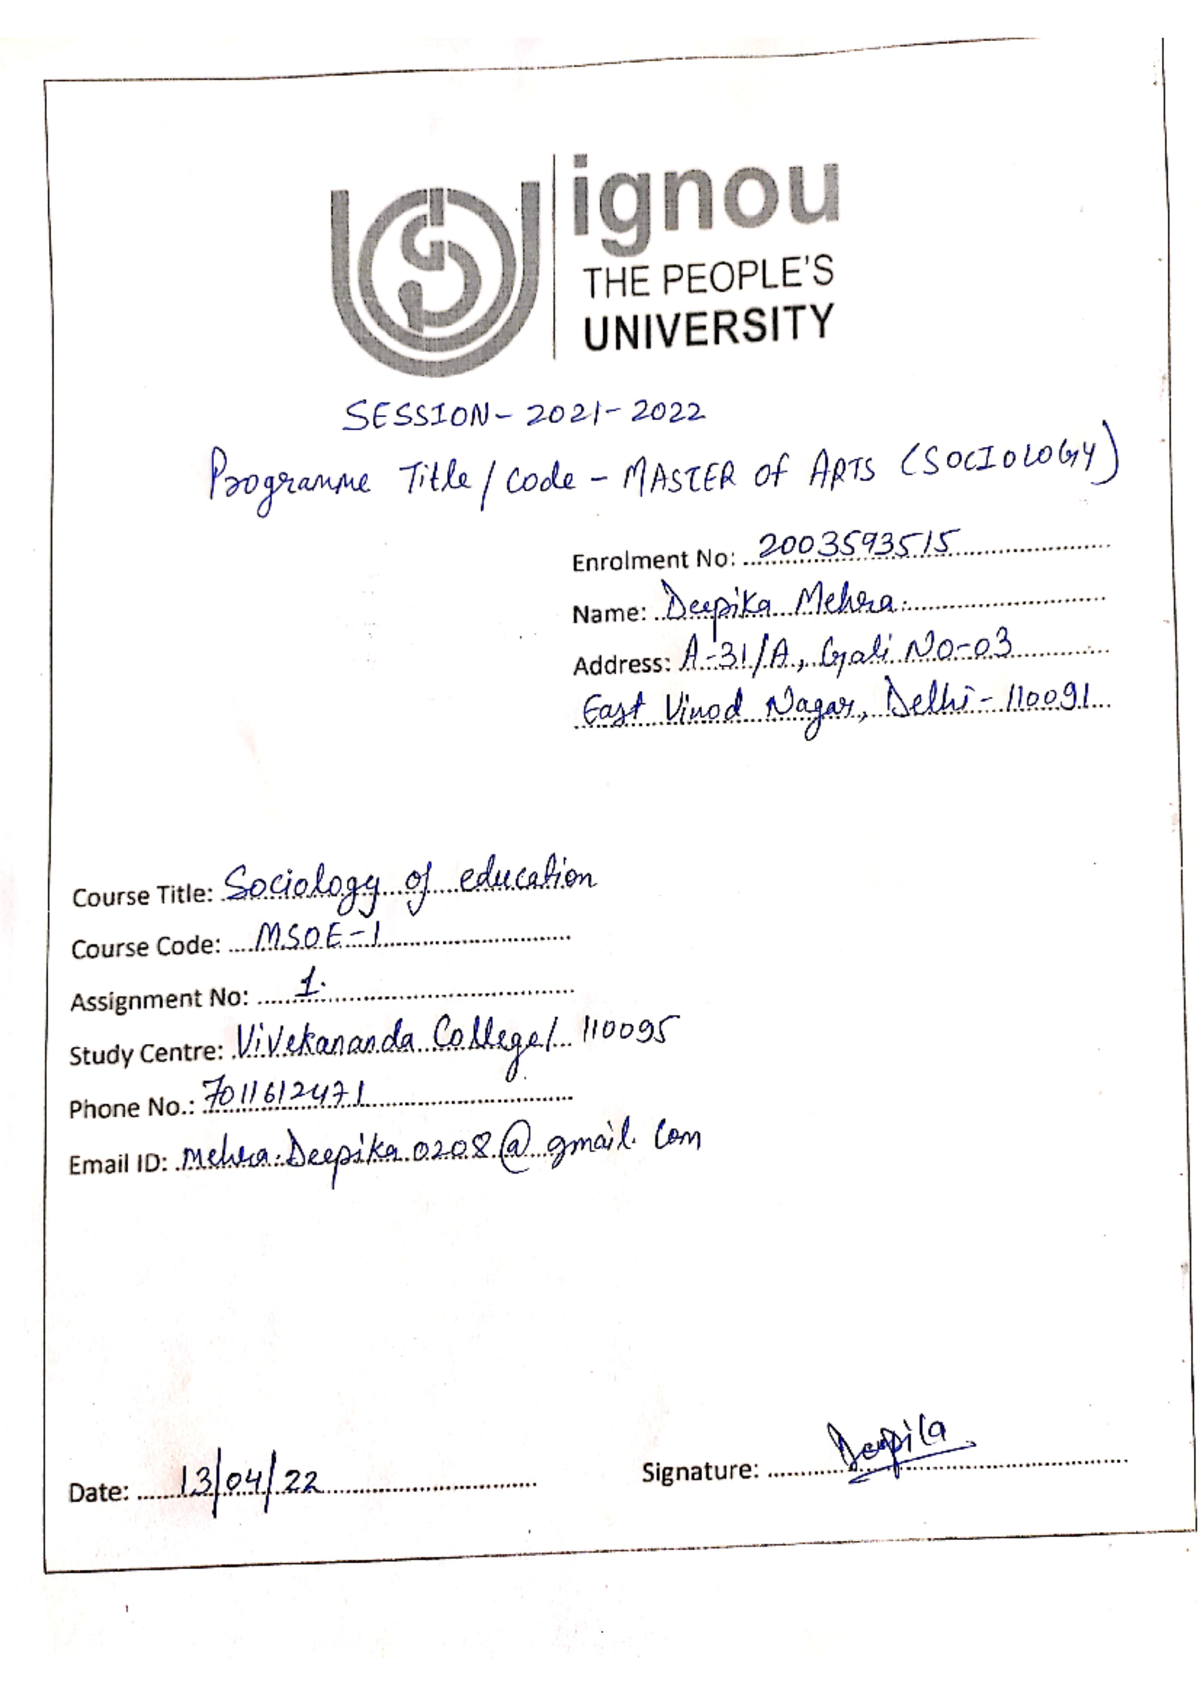 ignou
THE PEOPLE'S
UNIVERSITY
SESSION- 2021-2022
Programme Title / Code - MASTER of ARTS (SOCIOLOGY)
Enrolment No: 2003593515
Name: Deepika Mehra.
Address: A-31/A, Gali No-03
East Vinod Nagar, Delhi - 110091
Course Title: Sociology of education
Course Code: MSOE-1
Assignment No: 1.
Study Centre: Vivekananda College/ 110095
Phone No.: 7011612471
Email ID: Mehra.Deepika.0208@gmail.com
Date: 13/04/22
Signature: Deepika